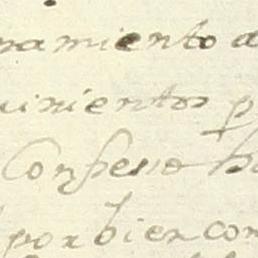 namiento d
uinientos p
Confesso h
porbien con